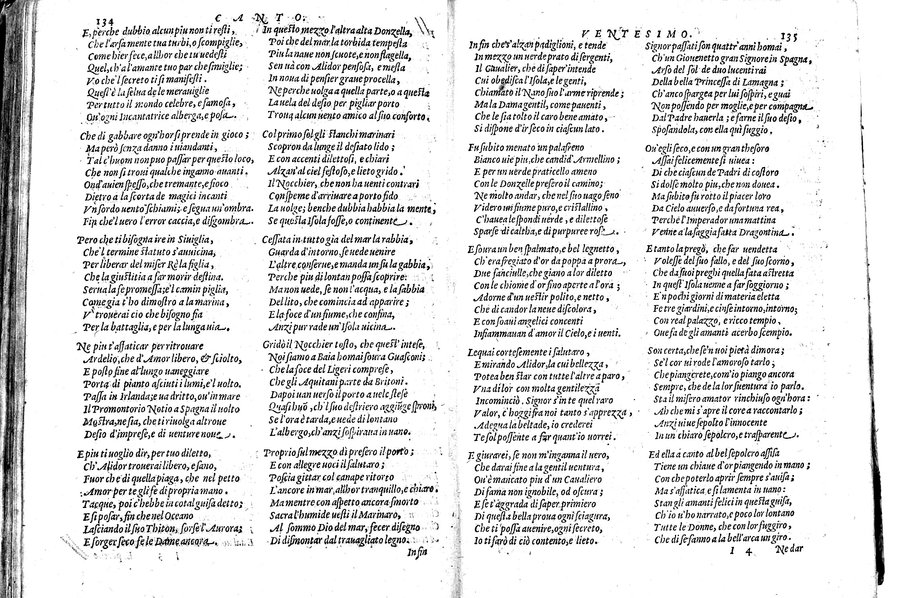 134
CANTO.
E, perche dubbio alcun piu non ti resti,
Che l'arsa mente tua turbi, o scompiglie,
Come hier sece, allhor che tu uedesti
Quel, ch'a l'amante tuo par che simiglie;
Vo che'l secreto ti si manifesti.
Quest'è la selua de le merauiglie
Per tutto il mondo celebre, e famosa,
Ou'ogni Incantatrice alberga, e posa.
Che di gabbare ogn'hor si prende in gioco;
Ma però senza danno i uiandanti,
Tal c'huom non puo passar per questo loco,
Che non si troui qualche inganno auanti.
Ond'auien spesso, che tremante, e fioco
Dietro a la scorta de magici incanti
Vn sordo uento schiami; e segua un'ombra
Fin che'l uero l'error caccia, e disgombra.
Pero che ti bisogna ire in Siuiglia,
Che'l termine statuto s'auuicina,
Per liberar del miser Rè la figlia,
Che la giustitia a far morir destina.
Serua la se promessa; e'l camin piglia,
Come gia t'ho dimostro a la marina,
V' trouerai cio che bisogno fia
Per la battaglia, e per la lunga uia.
Ne piu t'affaticar per ritrouare
Ardelio, che d'Amor libero, & sciolto,
E posto fine al lungo uaneggiare
Porta di pianto asciuti i lumi, e'l uolto.
Passa in Irlanda; e ua dritto, ou'in mare
Il Promontorio Notio a Spagna il uolto
Mostra, ne sia, che ti riuolga altroue
Desio d'imprese, e di uenture noue.
E piu ti uoglio dir, per tuo diletto,
Ch'Alidor trouerai libero, e sano,
Fuor che di quella piaga, che nel petto
Amor per te gli fe di propria mano.
Tacque, poi c'hebbe in cotal guisa detto;
E si posar, fin che nel Oceano
Lasciando il suo Thiton, sorse l'Aurora;
E sorger seco fe le Dame ancora.
In questo mezzo l'altra alta Donzella,
Poi che del mar la torbida tempesta
Piu la naue non scuote, e non flagella,
Sen uà con Alidor pensosa, e mesta
In noua di pensier graue procella,
Ne perche uolga a quella parte, o a questa
La uela del desio per pigliar porto
Troua alcun uento amico al suo conforto.
Col primo sol gli stanchi marinari
Scopron da lunge il desiato lido;
E con accenti dilettosi, e chiari
Alzan'al ciel festoso, e lieto grido.
Il Nocchier, che non ha uenti contrari
Conspeme d'arriuare a porto fido
La uolge; benche dubbia habbia la mente,
Se questa Isola fosse, o continente.
Cessata in tutto gia del mar la rabbia,
Guarda d'intorno, se uede uenire
L'altre conserue, e manda un su la gabbia,
Perche piu di lontan possa scoprire:
Ma non uede, se non l'acqua, e la sabbia
Del lito, che comincia ad apparire;
E la foce d'un fiume, che confina,
Anzi pur rade un'Isola uicina.
Gridò il Nocchier tosto, che quest' intese,
Noi siamo a Baia homai foura Guasconi;
Che la foce del Ligeri comprese,
Che gli Aquitani parte da Britoni.
Dapoi uan uerso il porto a uele stese
Quasi huò, ch'l suo destriero aggiūge sproni,
Se l'ora è tarda, e uede di lontano
L'albergo, ch'anzi sospiraua in uano.
Proprio sul mezzo dì presero il porto;
E con allegre uoci il salutaro;
Poscia gittar col canape ritorto
L'ancore in mar, allhor tranquillo, e chiaro.
Ma mentre con aspetto ancora smorto
Sacra l'humide uesti il Marinaro,
Al sommo Dio del mar, fecer disegno
Di dismontar dal trauagliato legno.
Infin
VENTESIMO.
135
In fin che s'alzan padiglioni, e tende
In mezzo un uerde prato di sergenti,
Il Caualier, che di saper'intende
Cui obedisca l'Isola, e le genti,
Chiamato il Nano suo l'arme riprende;
Ma la Dama gentil, come pauenti,
Che le sia tolto il caro bene amato,
Si dispone d'ir seco in ciascun lato.
Fu subito menato un palafreno
Bianco uie piu, che candid'Armellino;
E per un uerde praticello ameno
Con le Donzelle preser il camino;
Ne molto andar, che nel suo uago seno
Videro un fiume puro, e cristallino,
C'hauea le spondi uerde, e dilettose
Sparse di caltha, e di purpuree rose.
E soura un ben spalmato, e bel legnetto,
Ch'era fregiato d'or da poppa a prora,
Due fanciulle, che giano a lor diletto
Con le chiome d'or fino aperte a l'ora;
Adorne d'un uestir polito, e netto,
Che di candor la neue discolora,
E con soaui angelici concenti
Infiammauan d'amor il Cielo, e i uenti.
Lequai cortesemente i salutaro,
E mirando Alidor, la cui bellezza
Potea ben star con tutte l'altre a paro,
Vna di lor con molta gentilezza
Incominciò. Signor s'in te quel raro
Valor, c'hoggi fra noi tanto s'apprezza,
Adegua la beltade, io crederei
Te sol possente a far quant'io uorrei.
E giurarei, se non m'inganna il uero,
Che darai fine a la gentil uentura,
Ou'è mancato piu d'un Caualiero
Di fama non ignobile, od oscura;
E se t'aggrada di saper primiero
Di questa bella proua ogni sciagura,
Che ti possa auenire, ogni secreto,
Io ti farò di ciò contento, e lieto.
Signor passati son quattr'anni homai,
Ch'un Giouenetto gran Signore in Spagna,
Arso del sol de duo lucenti rai
Della bella Principessa di Lamagna;
Ch'anco spargea per lui sospiri, e guai
Non possendo per moglie, e per compagna
Dal Padre hauerla; e farne il suo desio,
Sposandola, con ella quì fuggio.
Qu'egli seco, e con un gran thesoro
Assai felicemente si uiuea:
Di che ciascun de Padri di costoro
Si dolse molto piu, che non douea.
Ma subito fu rotto il piacer loro
Da Cielo auuerso, e da fortuna rea,
Perche l'Imperador una mattina
Venne a la saggia fata Dragontina.
E tanto la pregò, che far uendetta
Volesse del suo fallo, e del suo scorno,
Che da suoi preghi quella fata astretta
In quest' Isola uenne a far soggiorno;
E'n pochi giorni di materia eletta
Fe tre giardini, e cinse intorno, intorno;
Con real palazzo, e ricco tempio,
Oue fa de gli amanti acerbo scempio.
Son certa, che se'n uoi pietà dimora;
Se'l cor ui rode l'amoroso tarlo;
Che piangerete, com'io piango ancora
Sempre, che de la lor suentura io parlo.
Sta il misero amator rinchiuso ogn'hora:
Ah che mi s'apre il core a raccontarlo;
Anzi uiue sepolto l'innocente
In un chiaro sepolcro, e trasparente.
Ed ella a canto al bel sepolcro assisa
Tiene un chiaue d'or piangendo in mano;
Con che poterlo aprir sempre s'auisa;
Ma s'affatica, e si lamenta in uano:
Stan gli amanti felici in questa guisa,
Ch'io u'ho narrato, e poco lor lontano
Tutte le Donne, che con lor fuggiro,
Che di se fanno a la bell'arca un giro.
I 4
Ne dar